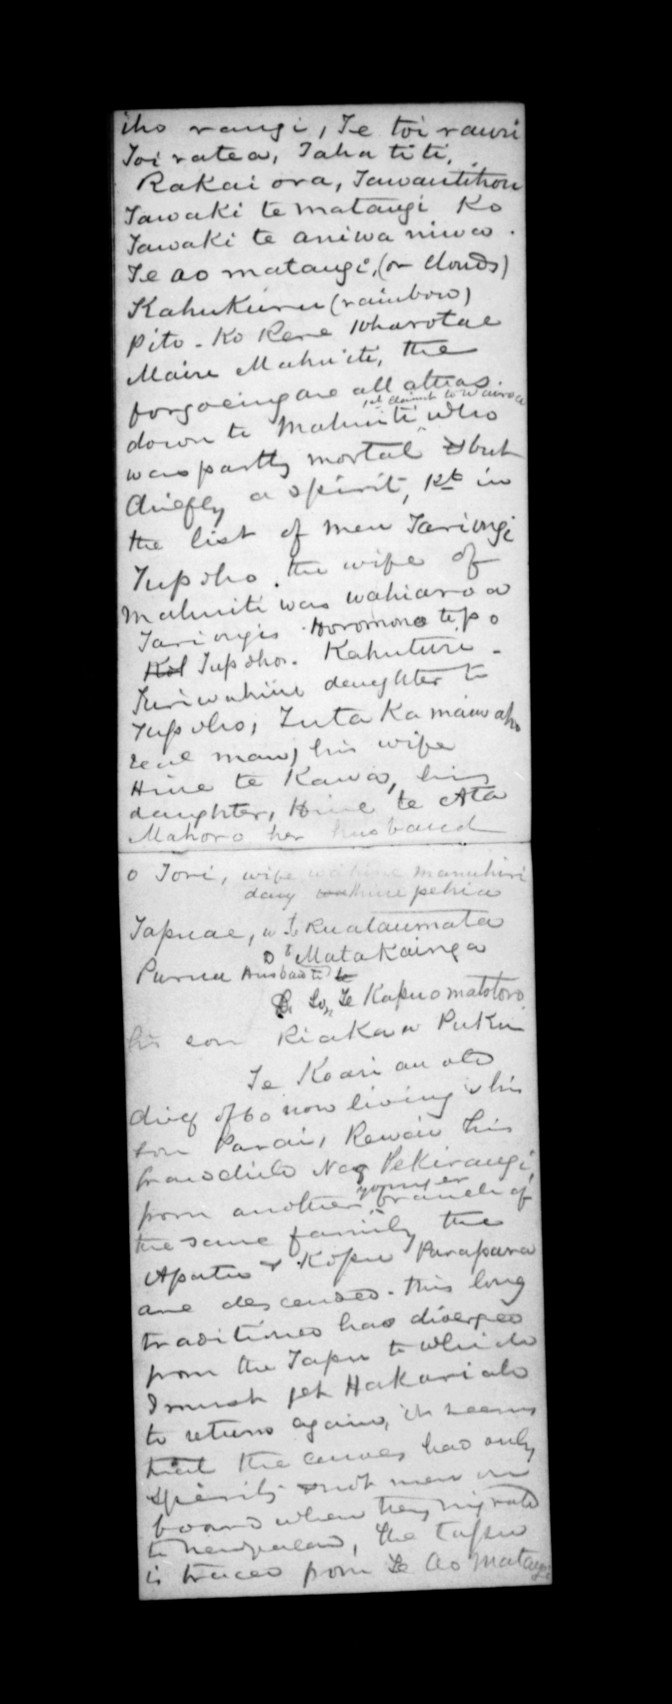 iho rangi, Te toi rauri
Toi ratea, Taha titi,
Rakai ora, Tawautihou
Tawaki te matangi Ko
Tawaki te aniwa niwa.
Te ao matangi, (or clouds)
Kahukuru (rainbow)
Pito - Ko Rere wharotae
Maire Mahuiti, the
forgoeing are all atuas.
down to Mahuiti who
was partly mortal but
chiefly a spirit, in
the list of men Tariongi
Tupoho. the wife of
Mahuiti was wahiaroa
Tariongis Horomona te po
Tupohos. Kahuturi -
Turiwahini daughter to
Tupoho,
real man, his wife
Hine te Kawa, his
daughter, Hine te Ata
Mahoro her husband
o Tori, wife manuhiri
pehia
Tapuae, w to Ruataumata
D to Matakainga
Purua Husband to
Son, Te Kapuomatotoro
his son Riakaw Puku
Te Koari an old
chief of 60 now living & his
son Parai, Rewai his
grandchild Pekirangi,
from another younger branch of
the same family the
Apatu & Kopu Parapara
are descended. this long
traditioned has diverged
from the Tapu to which
I must get Hakariah
to return again, it seems
that the canoes had only
spirits & not men on
board when they migrated
to New Zealand, the tapu
is traced from Te Ao Matangi